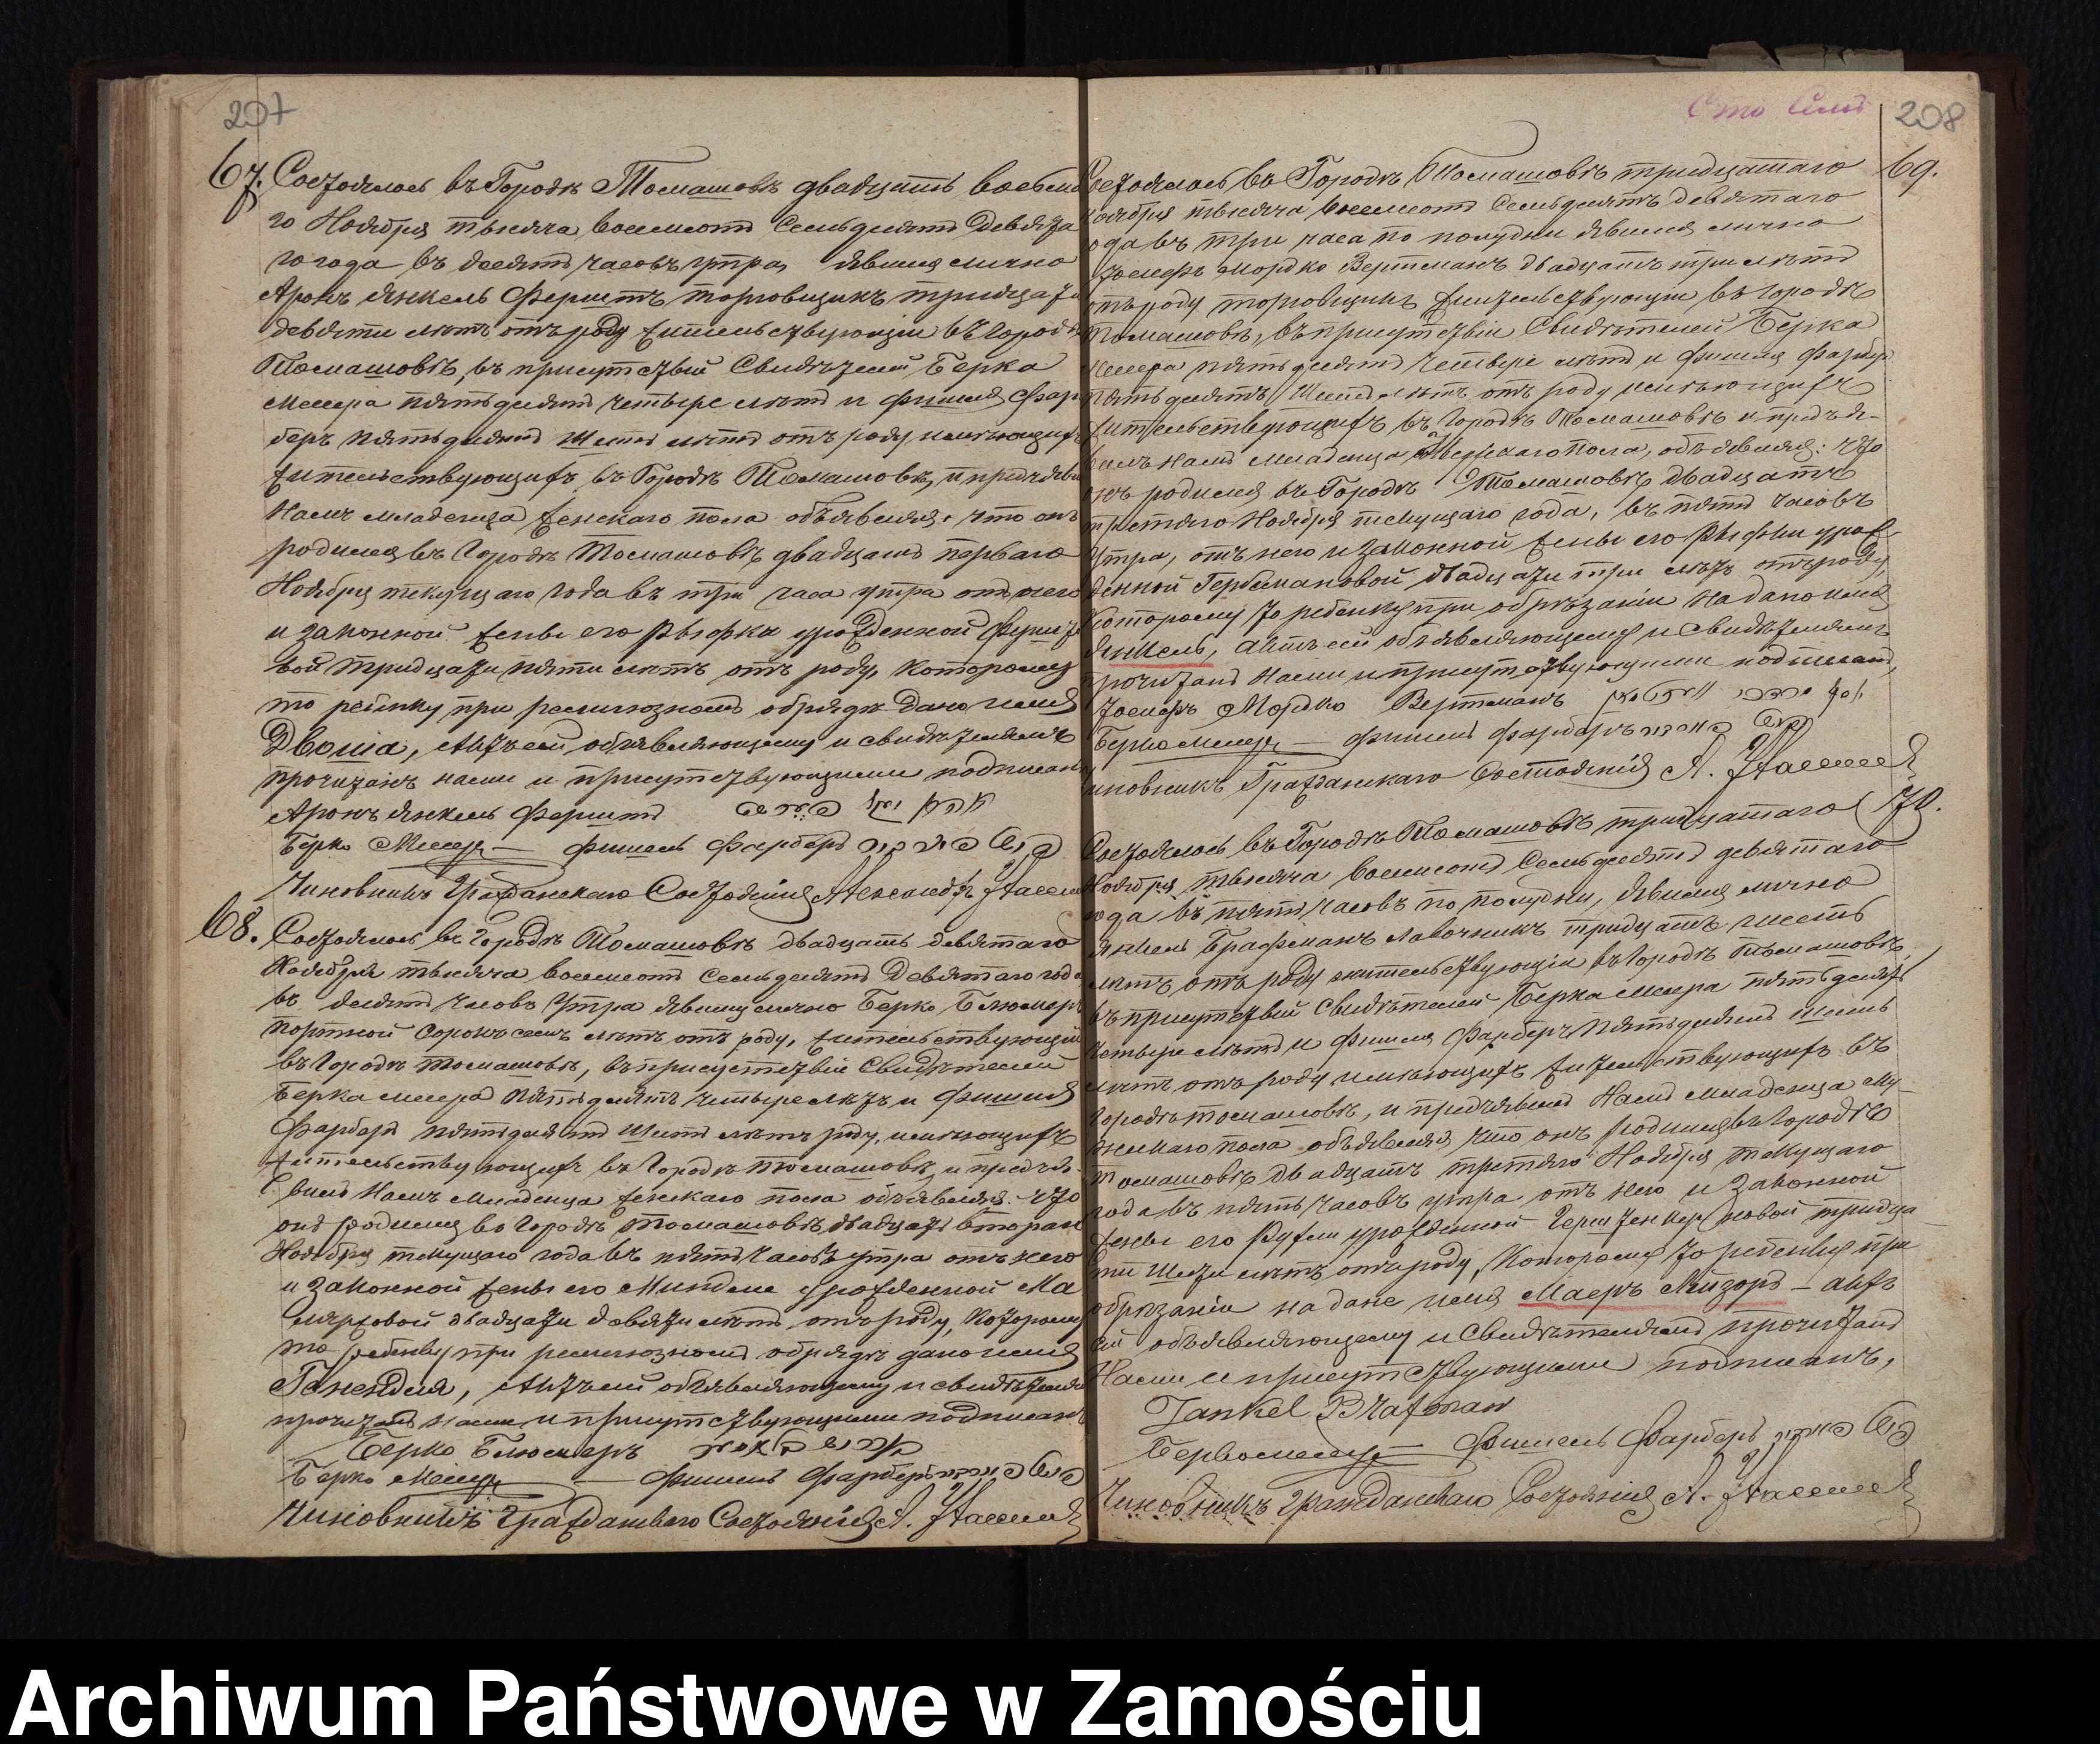 207
67. Состоялось въ Городѣ Томашовѣ двадцать восьма
го Ноября тысяча восемсотъ Семьдесятъ Девята
го года въ десять часовъ утра, явился лично
Аронъ Янкель Фершть торговщикъ тридцати
девяти лѣтъ отъ роду жительствующій въ Городѣ
Томашовѣ, въ присутствіи Свидѣтелей Берка
Мелера пятьдесятъ четыре лѣтъ и Фишеля Фар
беръ пятьдесятъ шесть лѣтъ отъ роду имѣющихъ
жительствующихъ въ Городѣ Томашовѣ, и предъяви
Намъ младенца женскаго пола объявляя, что онъ
родился въ Городѣ Томашовѣ двадцать перваго
Ноября текущаго года въ три часа утра отъ него
и законной жены его Рыфка урожденной
вой тридцати пяти лѣтъ отъ роду, которому
то ребенку при религіозномъ обрядѣ дано имя
Двоша, Актъ сей объявляющему и свидѣтелямъ
прочитанъ нами и присутствующими подписан
Аронъ Янкель Фершть
Берко Мелеръ — Фишель Фарберъ
Чиновникъ Гражданскаго Состоянія
68. Состоялось въ Городѣ Томашовѣ двадцать девятаго
Ноября тысяча восемсотъ Семьдесятъ Девятаго года
въ десять часовъ утра явился лично Берко Блюмеръ
портной сорокъ семъ лѣтъ отъ роду, жительствующій
въ Городѣ Томашовѣ, въ присутствіе Свидѣтелей
Берка Мелера пятьдесятъ четыре лѣтъ и Фишеля
Фарбера пятьдесятъ шесть лѣтъ роду, имѣющихъ
жительствующихъ въ Городѣ Томашовѣ, и предъя-
вилъ Намъ Младенца женскаго пола объявляя что
онъ родился въ Городѣ Томашовѣ двадцать втораго
Ноября текущаго года въ пять часовъ утра отъ него
и законной жены его Миндля урожденной Ма
двадцати девяти лѣтъ отъ роду, которому
то ребенку при религіозномъ обрядѣ дано имя
Генендля, Актъ сей объявляющему и свидѣтеля
прочитанъ нами и присутствующими подписанъ
Берко Блюмеръ
Берко Мелеръ — Фишель Фарберъ
Чиновникъ Гражданскаго Состоянія А.
Сто 208
69.
Состоялось въ Городѣ Томашовѣ тридцатаго
Ноября тысяча восемсотъ Семьдесятъ девятаго
ода въ три часа по полудни явился лично
Іосефъ Мордко Вертманъ двадцать три лѣтъ
отъ роду торговщикъ жительствующій въ Городѣ
Томашовѣ, въ присутствіи Свидѣтелей Берка
Мелера пятьдесятъ четыре лѣтъ и Фишеля Фарбер
пятьдесятъ шесть лѣтъ отъ роду имѣющихъ
жительствующихъ въ Городѣ Томашовѣ и предъя-
вилъ Намъ Младенца Мужскаго пола, объявляя: что
онъ родился въ Городѣ Томашовѣ двадцать
третяго Ноября текущаго года, въ пять часовъ
утра, отъ него и законной жены его Рыфки урож-
денной двадцати три лѣтъ отъ роду,
Которому то ребенку при обрѣзаніи надано имя
Янкель, Актъ сей объявляющему и свидѣтелямъ
прочитанъ нами и присутствующими подписанъ,
Іосефъ Мордко Вертманъ
Берко Мелеръ — Фишель Фарберъ
иновникъ Гражданскаго Состоянія А.
70.
Состоялось въ Городѣ Томашовѣ тридцатаго
Ноября тысяча восемсотъ Семьдесятъ девятаго
года въ пять часовъ по полудни, явился лично
Янкель Брафманъ лавочникъ тридцать шесть
лѣтъ отъ роду жительствующій въ Городѣ Томашовѣ,
въ присутствіи свидѣтелей Берка Мелера пятьдесятъ
четыре лѣтъ и Фишеля Фарберъ пятьдесятъ шесть
лѣтъ отъ роду имѣющихъ жительствующихъ въ
Городѣ Томашовѣ, и предъявилъ Намъ младенца му-
жскаго пола объявляя, что онъ родился въ Городѣ
Томашовѣ двадцать третяго Ноября текущаго
года въ пять часовъ утра отъ него и законной
жены его урожденной тридца
ти шести лѣтъ отъ роду, Которому то ребенку при
обрѣзаніи надане имя Маеръ Лейзоръ — актъ
сей объявляющему и Свидѣтелямъ прочитанъ
Нами и присутствующими подписанъ,
Jankel Brafman
Берко Мелеръ — Фишель Фарберъ
Чиновникъ Гражданскаго Состоянія А.
Archiwum Państwowe w Zamościu